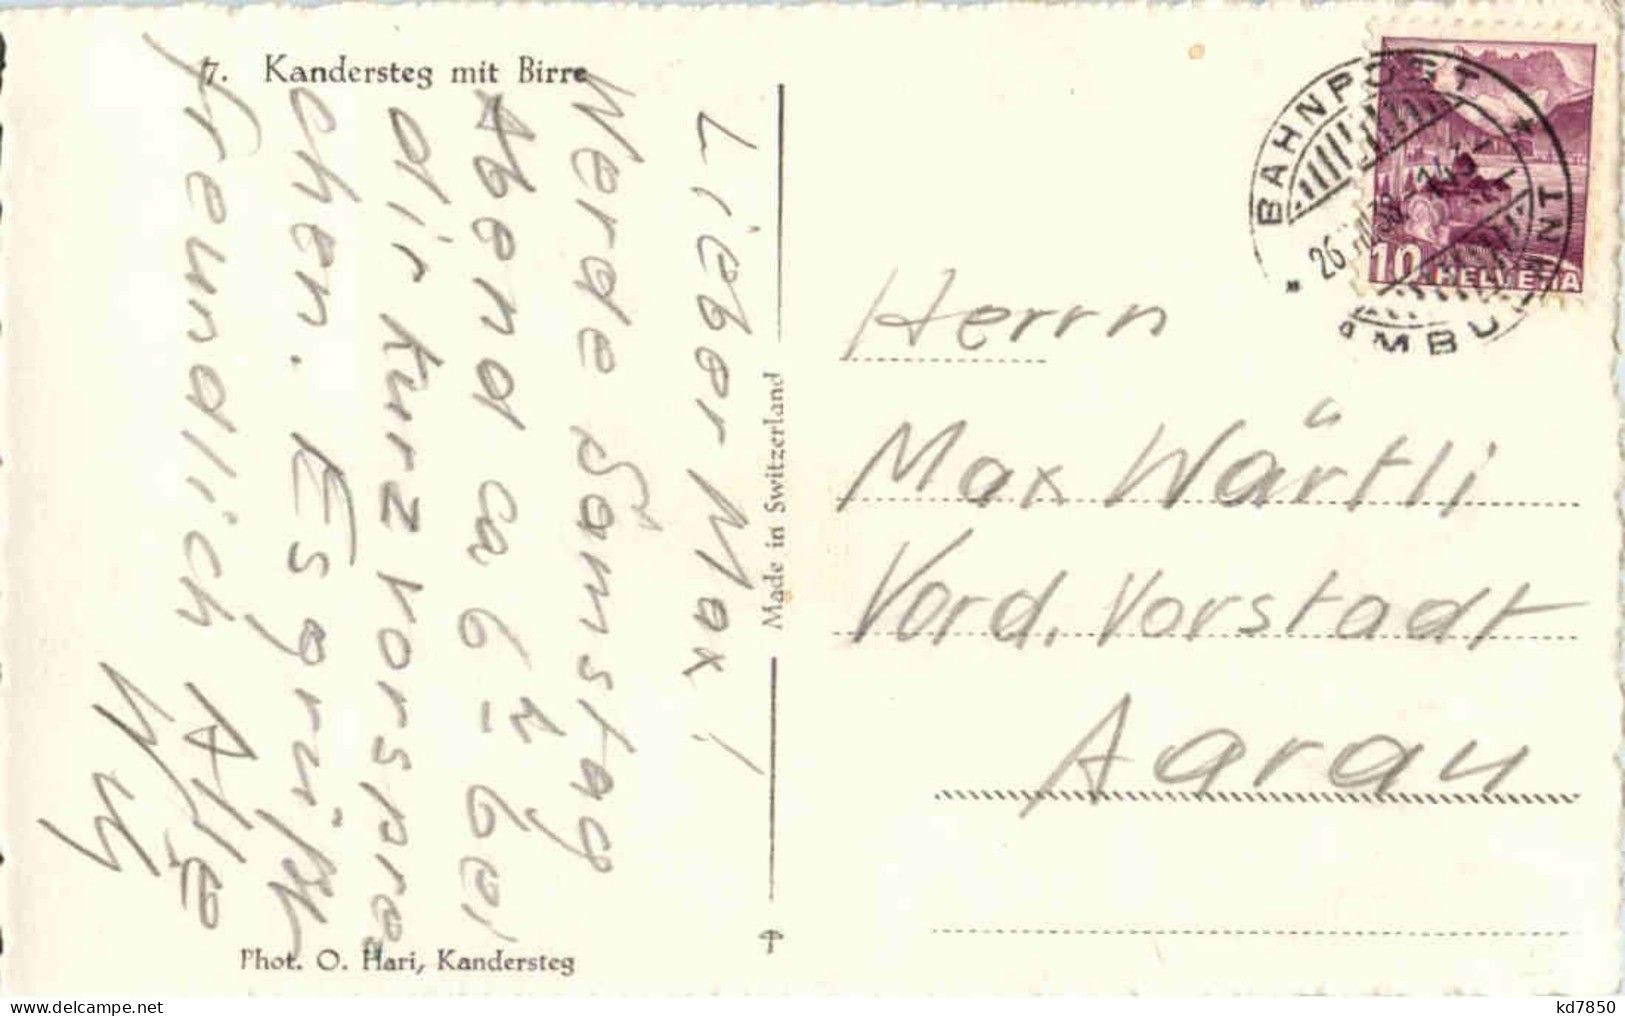 7. Kandersteg mit Birre
Lieber Max!
Werde Samstag
Abend ca 6 - bei
dir kurz vorspre
chen. Es grüßt
freundlich
Made in Switzerland
Phot. O. Hari, Kandersteg
BAHNPOST
AMBULANT
26
10 HELVETIA
Herrn
Max Wärtli
Vord. Vorstadt
Aarau
www.delcampe.net
kd7850